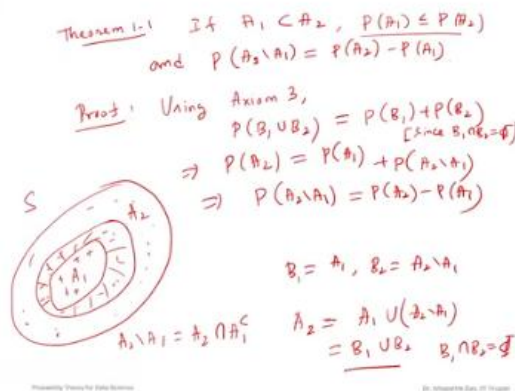 Theorem 1-1 If A₁ ⊂ A₂, P(A₁) ≤ P(A₂)
and P(A₂\A₁) = P(A₂) - P(A₁)
Proof: Using Axiom 3,
P(B₁ ∪ B₂) = P(B₁) + P(B₂)
[Since B₁∩B₂=ϕ]
⇒ P(A₂) = P(A₁) + P(A₂\A₁)
⇒ P(A₂\A₁) = P(A₂) - P(A₁)
S
A₂
A₁
B₁ = A₁, B₂ = A₂\A₁
A₂\A₁ = A₂ ∩ A₁ᶜ
A₂ = A₁ ∪ (A₂\A₁)
= B₁ ∪ B₂ B₁∩B₂=ϕ
Probability Theory for Data Science